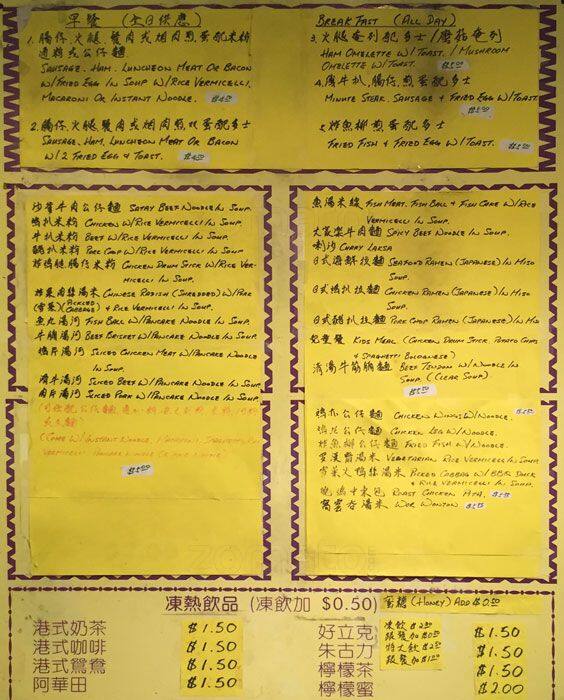 早餐 (全日供應)
1. 腸仔, 火腿, 餐肉或烟肉煎蛋配米粉
通粉或公仔麵
SAUSAGE, HAM, LUNCHEON MEAT OR BACON
W/FRIED EGG IN SOUP W/RICE VERMICELLI,
MACARONI OR INSTANT NOODLE.
2. 腸仔, 火腿, 餐肉或烟肉煎双蛋配多士
SAUSAGE, HAM, LUNCHEON MEAT OR BACON
W/2 FRIED EGG & TOAST.
BREAKFAST (ALL DAY)
3. 火腿奄列配多士/磨菇奄列
HAM OMELETTE W/TOAST. / MUSHROOM
OMELETTE W/TOAST.
4. 牛扒, 腸仔, 煎蛋配多士
MINUTE STEAK, SAUSAGE & FRIED EGG W/TOAST.
5. 炸魚柳煎蛋配多士
FRIED FISH & FRIED EGG W/TOAST.
沙爹牛肉公仔麵 SATAY BEEF NOODLE IN SOUP.
鷄扒米粉 CHICKEN W/RICE VERMICELLI IN SOUP.
牛扒米粉 BEEF W/RICE VERMICELLI IN SOUP.
豬扒米粉 PORK CHOP W/RICE VERMICELLI IN SOUP.
炸鷄腿腸仔米粉 CHICKEN DRUM STICK W/RICE VER-
MICELLI IN SOUP.
炸菜肉絲湯米 CHINESE RADISH (SHREDDED) W/PORK
(雪菜) (PICKLED CABBAGE) & RICE VERMICELLI IN SOUP.
魚丸湯河 FISH BALL W/PANCAKE NOODLE IN SOUP.
牛腩湯河 BEEF BRISKET W/PANCAKE NOODLE IN SOUP.
鷄片湯河 SLICED CHICKEN MEAT W/PANCAKE NOODLE
IN SOUP.
滑牛湯河 SLICED BEEF W/PANCAKE NOODLE IN SOUP.
肉片湯河 SLICED PORK W/PANCAKE NOODLE IN SOUP.
(COME W/INSTANT NOODLE, MACARONI, SPAGHETTI,
$5.50
魚湯米線 FISH MEAT, FISH BALL & FISH CAKE W/RICE
VERMICELLI IN SOUP.
牛肉麵 SPICY BEEF NOODLE IN SOUP.
喇沙 CURRY LAKSA
日式海鮮拉麵 SEAFOOD RAMEN (JAPANESE) IN MISO
SOUP.
日式鷄扒拉麵 CHICKEN RAMEN (JAPANESE) IN MISO
SOUP.
日式豬扒拉麵 PORK CHOP RAMEN (JAPANESE) IN MISO
兒童餐 KIDS MEAL (CHICKEN DRUM STICK, POTATO CHIPS
& SPAGHETTI BOLOGNESE)
清湯牛筋腩麵 BEEF TENDON W/NOODLE IN
SOUP ((CLEAR SOUP)
公仔麵 CHICKEN WINGS W/NOODLE.
公仔麵 CHICKEN LEG W/NOODLE.
炸魚柳公仔麵 FRIED FISH W/NOODLE.
羅漢齋湯米 VEGETARIAN RICE VERMICELLI IN SOUP.
雪菜火鴨絲湯米 PICKED CABBAG W/BBQ DUCK
& RICE VERMICELLI IN SOUP.
ROAST CHICKEN PITA.
窩雲吞湯米 WOR WONTON.
凍熱飲品 (凍飲加 $0.50) 蜜糖 (HONEY) ADD $0.50
港式奶茶 $1.50
港式咖啡 $1.50
港式鴛鴦 $1.50
阿華田 $1.50
好立克 凍飲 $1.50
朱古力 $1.50
檸檬茶 特大飲 $1.50
檸檬蜜 $2.00